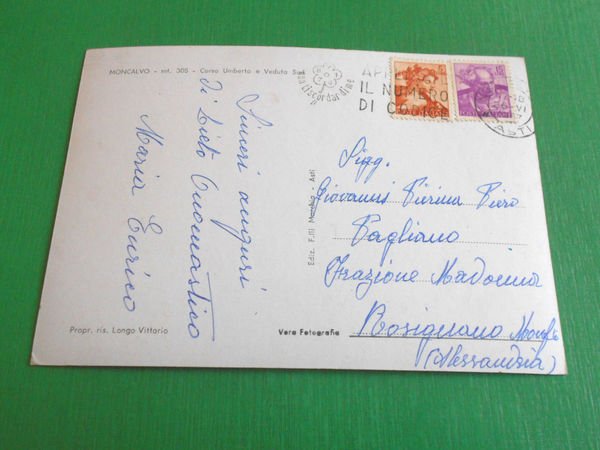 MONCALVO - mt. 305 - Corso Umberto e Veduta Sud
Sinceri auguri
di Lieto Onomastico
Maria Enrico
Propr. ris. Longo Vittorio
Ediz. F.lli - Asti
Vera Fotografia
non ti scordar di me
IL NUMERO
DI CODICE
ASTI
Sigg.
Giovanni Pierina Piero
Pagliano
Frazione Madonna
Rosignano Monf.
(Alessandria)